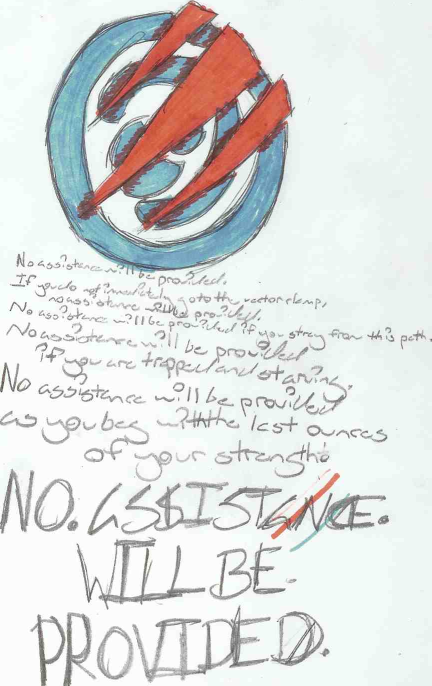 No assistance will be provided.
If you do not immediately go to the vector clamp,
no assistance will be provided.
No assistance will be provided if you stray from this path.
No assistance will be provided
if you are trapped and starving.
No assistance will be provided
as you beg with the last ounces
of your strength.
NO. ASSISTANCE.
WILL BE.
PROVIDED.